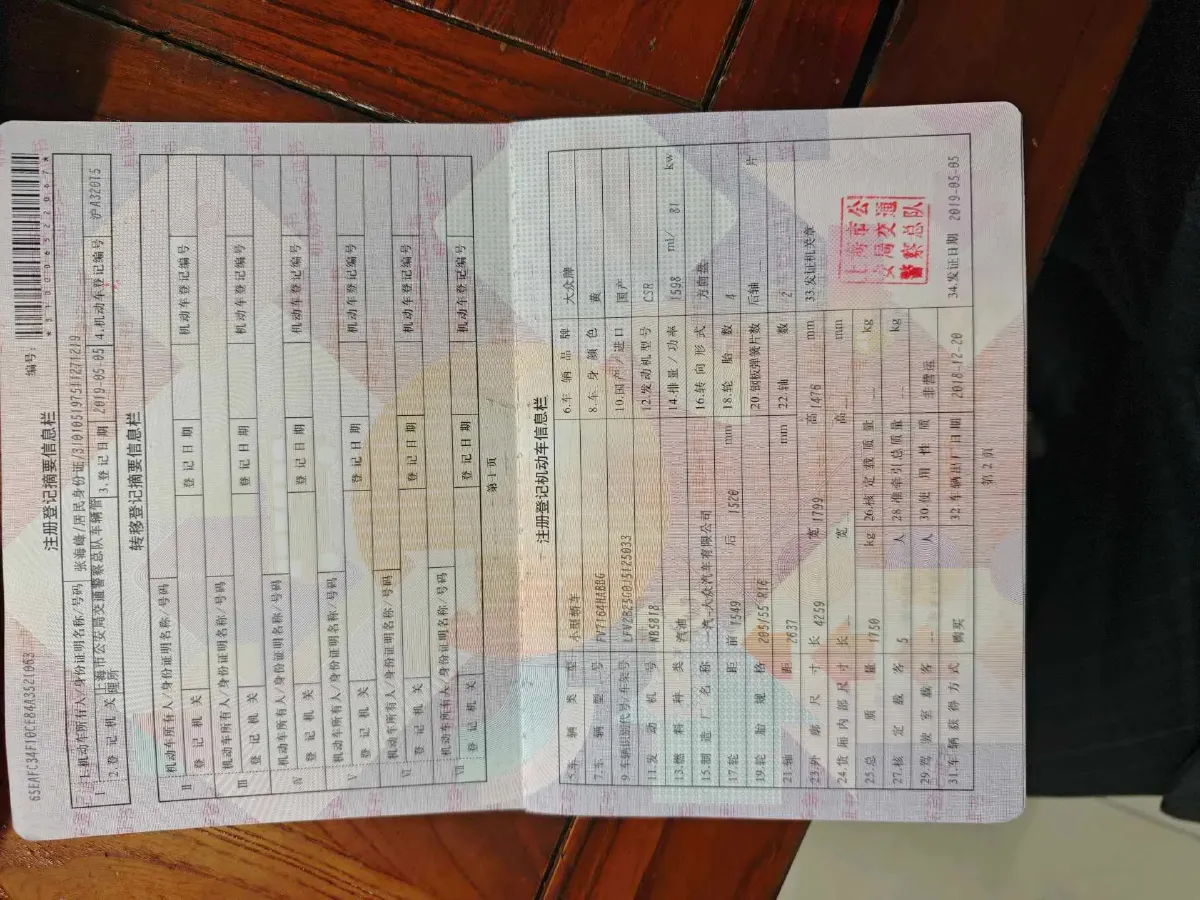 65EAFC34F10CE84A3521063
注册登记摘要信息栏
编号:
*310006522067*
Ⅰ 1.机动车所有人/身份证明名称/号码 张海峰/居民身份证/310105197511271219
2.登记机关 上海市公安局交通警察总队车辆管理所 3.登记日期 2019-05-05 4.机动车登记编号 沪A32015
转移登记摘要信息栏
Ⅱ 机动车所有人/身份证明名称/号码
登记机关 登记日期 机动车登记编号
Ⅲ 机动车所有人/身份证明名称/号码
登记机关 登记日期 机动车登记编号
Ⅳ 机动车所有人/身份证明名称/号码
登记机关 登记日期 机动车登记编号
Ⅴ 机动车所有人/身份证明名称/号码
登记机关 登记日期 机动车登记编号
Ⅵ 机动车所有人/身份证明名称/号码
登记机关 登记日期 机动车登记编号
Ⅶ 机动车所有人/身份证明名称/号码
登记机关 登记日期 机动车登记编号
第1页
注册登记机动车信息栏
5.车辆类型 小型轿车 6.车辆品牌 大众牌
7.车辆型号 FV7164HABDG 8.车身颜色 黄
9.车辆识别代号/车架号 LFV2B25G0J5125033 10.国产/进口 国产
11.发动机号 NB5818 12.发动机型号 CSR
13.燃料种类 汽油 14.排量/功率 1598 ml/ 81 kw
15.制造厂名称 一汽-大众汽车有限公司 16.转向形式 方向盘
17.轮距 前 1549 后 1520 mm 18.轮胎数 4
19.轮胎规格 205/55 R16 20.钢板弹簧片数 后轴 -- 片
21.轴距 2637 mm 22.轴数 2
23.外廓尺寸 长 4259 宽 1799 高 1476 mm 33.发证机关章
24.货厢内部尺寸 长 宽 高 -- mm
上海市公安局交通警察总队
25.总质量 1750 kg 26.核定载质量 -- kg
27.核定载客 5 人 28.准牵引总质量 -- kg
29.驾驶室载客 -- 人 30.使用性质 非营运
31.车辆获得方式 购买 32.车辆出厂日期 2018-12-20 34.发证日期 2019-05-05
第2页